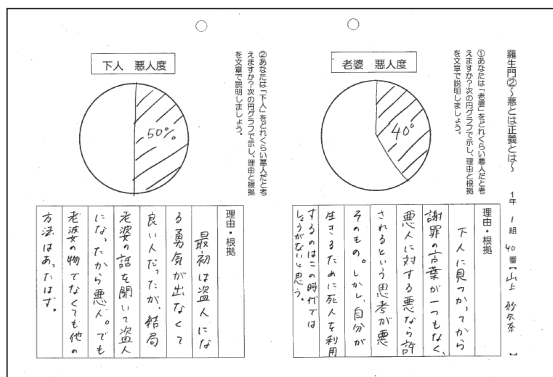 羅生門②～悪とは正義とは～
1年 1組 40番【山上 紗衣奈】
①あなたは「老婆」をどれくらい悪人だと考
えますか？次の円グラフで示し、理由と根拠
を文章で説明しましょう。
老婆 悪人度
40°
理由・根拠
下人に見つかってから
謝罪の言葉が一つもなく、
悪人に対する悪なら許
されるという思考が悪
そのもの。しかし、自分が
生きるために死人を利用
するのはこの時代では
しょうがないと思う。
②あなたは「下人」をどれくらい悪人だと考
えますか？次の円グラフで示し、理由と根拠
を文章で説明しましょう。
下人 悪人度
50%
理由・根拠
最初は盗人にな
る勇気が出なくて
良い人だったが、結局
老婆の話を聞いて盗人
になったから悪人。でも
老婆の物でなくても他の
方法はあったはず。